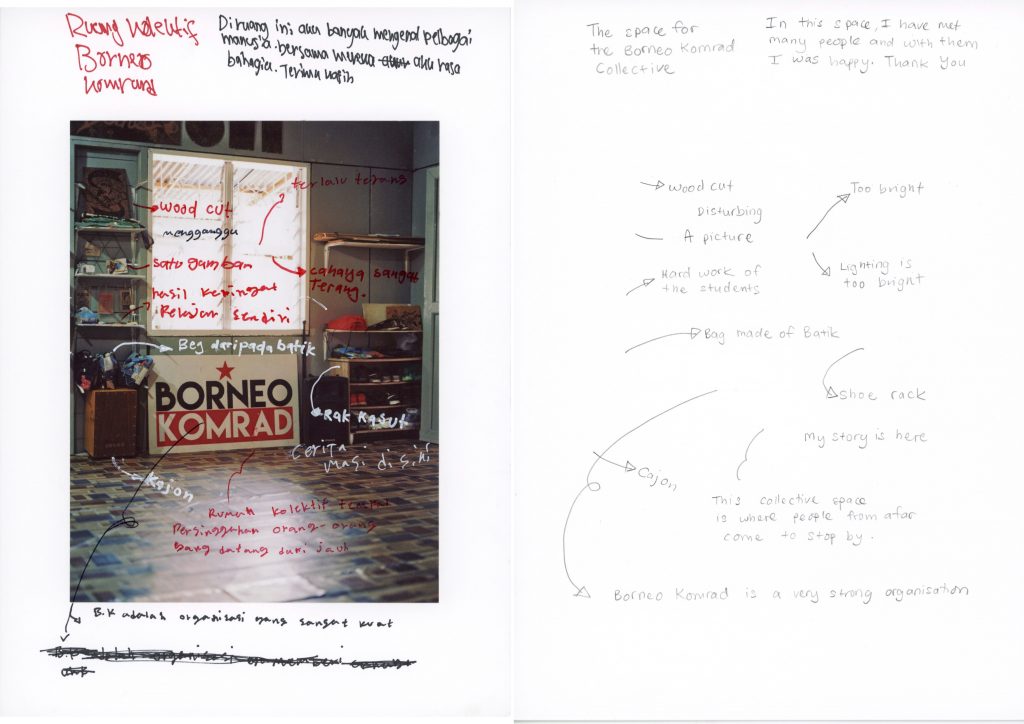 Ruang Kolektif
Borneo
Komrad
Diruang ini, aku banyak mengenal pelbagai
manusia. bersama mereka aku rasa
bahagia. Terima kasih
terlalu terang
wood cut
mengganggu
satu gambar
cahaya sangat
terang.
hasil keringat
Pelajar sendiri
Beg daripada batik
BORNEO
KOMRAD
Rak kasut
Cerita
masi di sini
Kajon
Rumah kolektif tempat
Persinggahan orang-orang
yang datang dari jauh
B.K adalah organisasi yang sangat kuat
The space for
the Borneo Komrad
Collective
In this space, I have met
many people and with them
I was happy. Thank you
wood cut
Disturbing
A picture
Hard work of
the students
Too bright
Lighting is
too bright
Bag made of Batik
Shoe rack
My story is here
Cajon
This collective space
is where people from afar
come to stop by.
Borneo Komrad is a very strong organisation